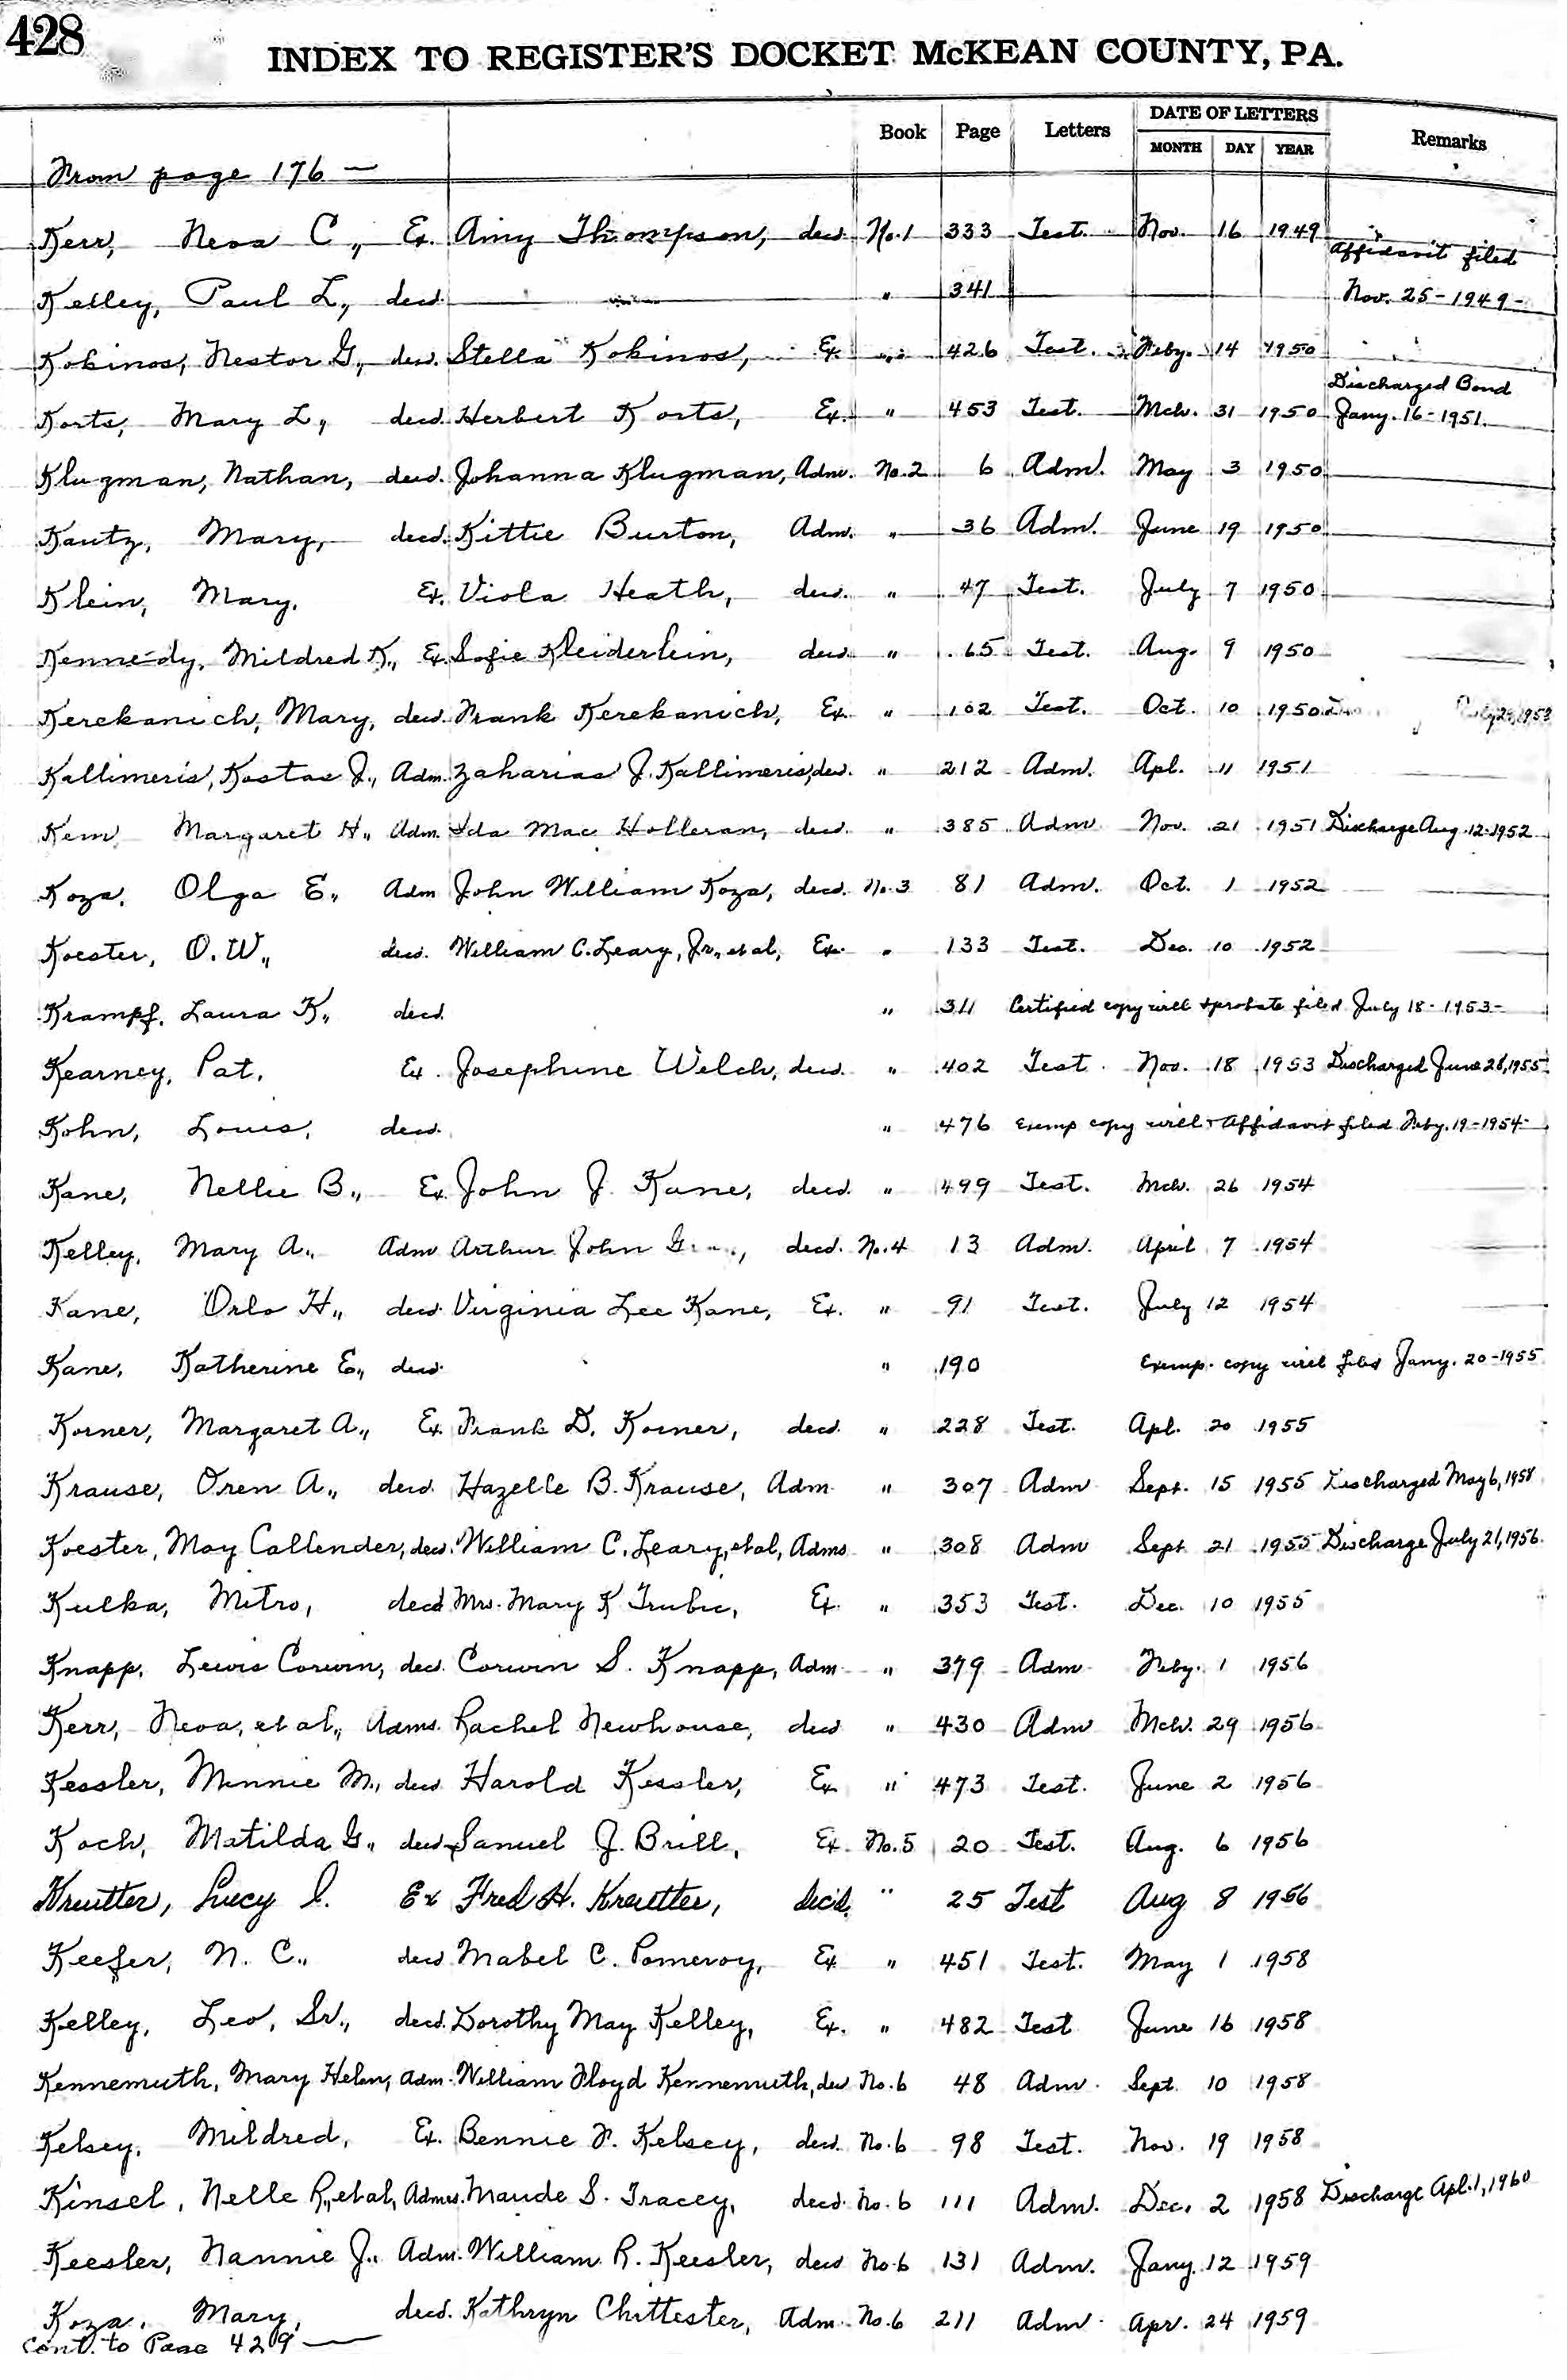 428
INDEX TO REGISTER'S DOCKET McKEAN COUNTY, PA.
Book Page Letters DATE OF LETTERS Remarks
MONTH DAY YEAR
From page 176 —
Kerr, Neva C., Ex. Amy Thompson, decd. No.1 333 Test. Nov. 16 1949
Kelley, Paul L., decd. " 341 Affidavit filed Nov. 25-1949-
Kokinos, Nestor G., decd. Stella Kokinos, Ex. " 426 Test. Feby. 14 1950
Korts, Mary L., decd. Herbert Korts, Ex. " 453 Test. Mch. 31 1950 Discharged Bond Jany. 16-1951.
Klugman, Nathan, decd. Johanna Klugman, Adm. No.2 6 Adm. May 3 1950
Kautz, Mary, decd. Kittie Burton, Adm. " 36 Adm. June 19 1950
Klein, Mary. Ex. Viola Heath, decd. " 47 Test. July 7 1950
Kennedy, Mildred K., Ex. Sofie Kleiderlein, decd. " 65 Test. Aug. 9 1950
Kerekanich, Mary, decd. Frank Kerekanich, Ex. " 102 Test. Oct. 10 1950
Kallimeris, Kostas J., Adm. Zaharias J. Kallimeris, decd. " 212 Adm. Apl. 11 1951
Kem Margaret H., Adm. Ida Mae Holleran, decd. " 385 Adm. Nov. 21 1951 Discharge Aug. 12-1952
Koza, Olga E., Adm John William Koza, decd. No.3 81 Adm. Oct. 1 1952
Koester, O. W., decd. William C. Leary, Jr., et al, Ex. " 133 Test. Dec. 10 1952
Krampf, Laura K., decd. " 311 Certified copy will & probate filed July 18-1953-
Kearney, Pat, Ex. Josephine Welch, decd. " 402 Test. Nov. 18 1953 Discharged June 28, 1955
Kohn, Louis, decd. " 476 Exemp copy will & Affidavit filed Feby. 19-1954-
Kane, Nellie B., Ex. John J. Kane, decd. " 499 Test. Mch. 26 1954
Kelley, Mary A., Adm Arthur John decd. No.4 13 Adm. April 7 1954
Kane, Orlo H., decd. Virginia Lee Kane, Ex. " 91 Test. July 12 1954
Kane, Katherine E., decd. " 190 Exemp. copy will filed Jany. 20-1955
Korner, Margaret A., Ex. Frank D. Korner, decd. " 228 Test. Apl. 20 1955
Krause, Oren A., decd. Hazelle B. Krause, Adm. " 307 Adm Sept. 15 1955 Discharged May 6, 1958
Koester, May Callender, decd. William C. Leary, et al, Adms " 308 Adm Sept 21 1955 Discharge July 21, 1956.
Kulka, Mitro, decd Mrs. Mary K Trubic, Ex. " 353 Test. Dec. 10 1955
Knapp, Lewis Corwin, decd. Corwin S. Knapp, Adm. " 379 Adm. Feby. 1 1956
Kerr, Neva, et al., Adms. Rachel Newhouse, decd " 430 Adm Mch. 29 1956
Kessler, Minnie M., decd Harold Kessler, Ex " 473 Test. June 2 1956
Koch, Matilda G., decd Samuel J. Brill, Ex. No.5 20 Test. Aug. 6 1956
Kreutter, Lucy I. Ex Fred H. Kreutter, dec'd. " 25 Test Aug 8 1956
Keefer, N. C., decd Mabel C. Pomeroy, Ex. " 451 Test. May 1 1958
Kelley, Leo, Sr., decd. Dorothy May Kelley, Ex. " 482 Test June 16 1958
Kennemuth, Mary Helen, Adm. William Floyd Kennemuth, decd No.6 48 Adm. Sept. 10 1958
Kelsey, Mildred, Ex. Bennie F. Kelsey, decd. No.6 98 Test. Nov. 19 1958
Kinsel, Nelle R., et al, Adms. Maude S. Tracey, decd. No.6 111 Adm. Dec. 2 1958 Discharge Apl. 1, 1960
Keesler, Nannie J., Adm. William R. Keesler, decd No.6 131 Adm. Jany. 12 1959
Koza, Mary, decd. Kathryn Chittester, Adm. No.6 211 Adm. Apr. 24 1959
Cont. to Page 429 —